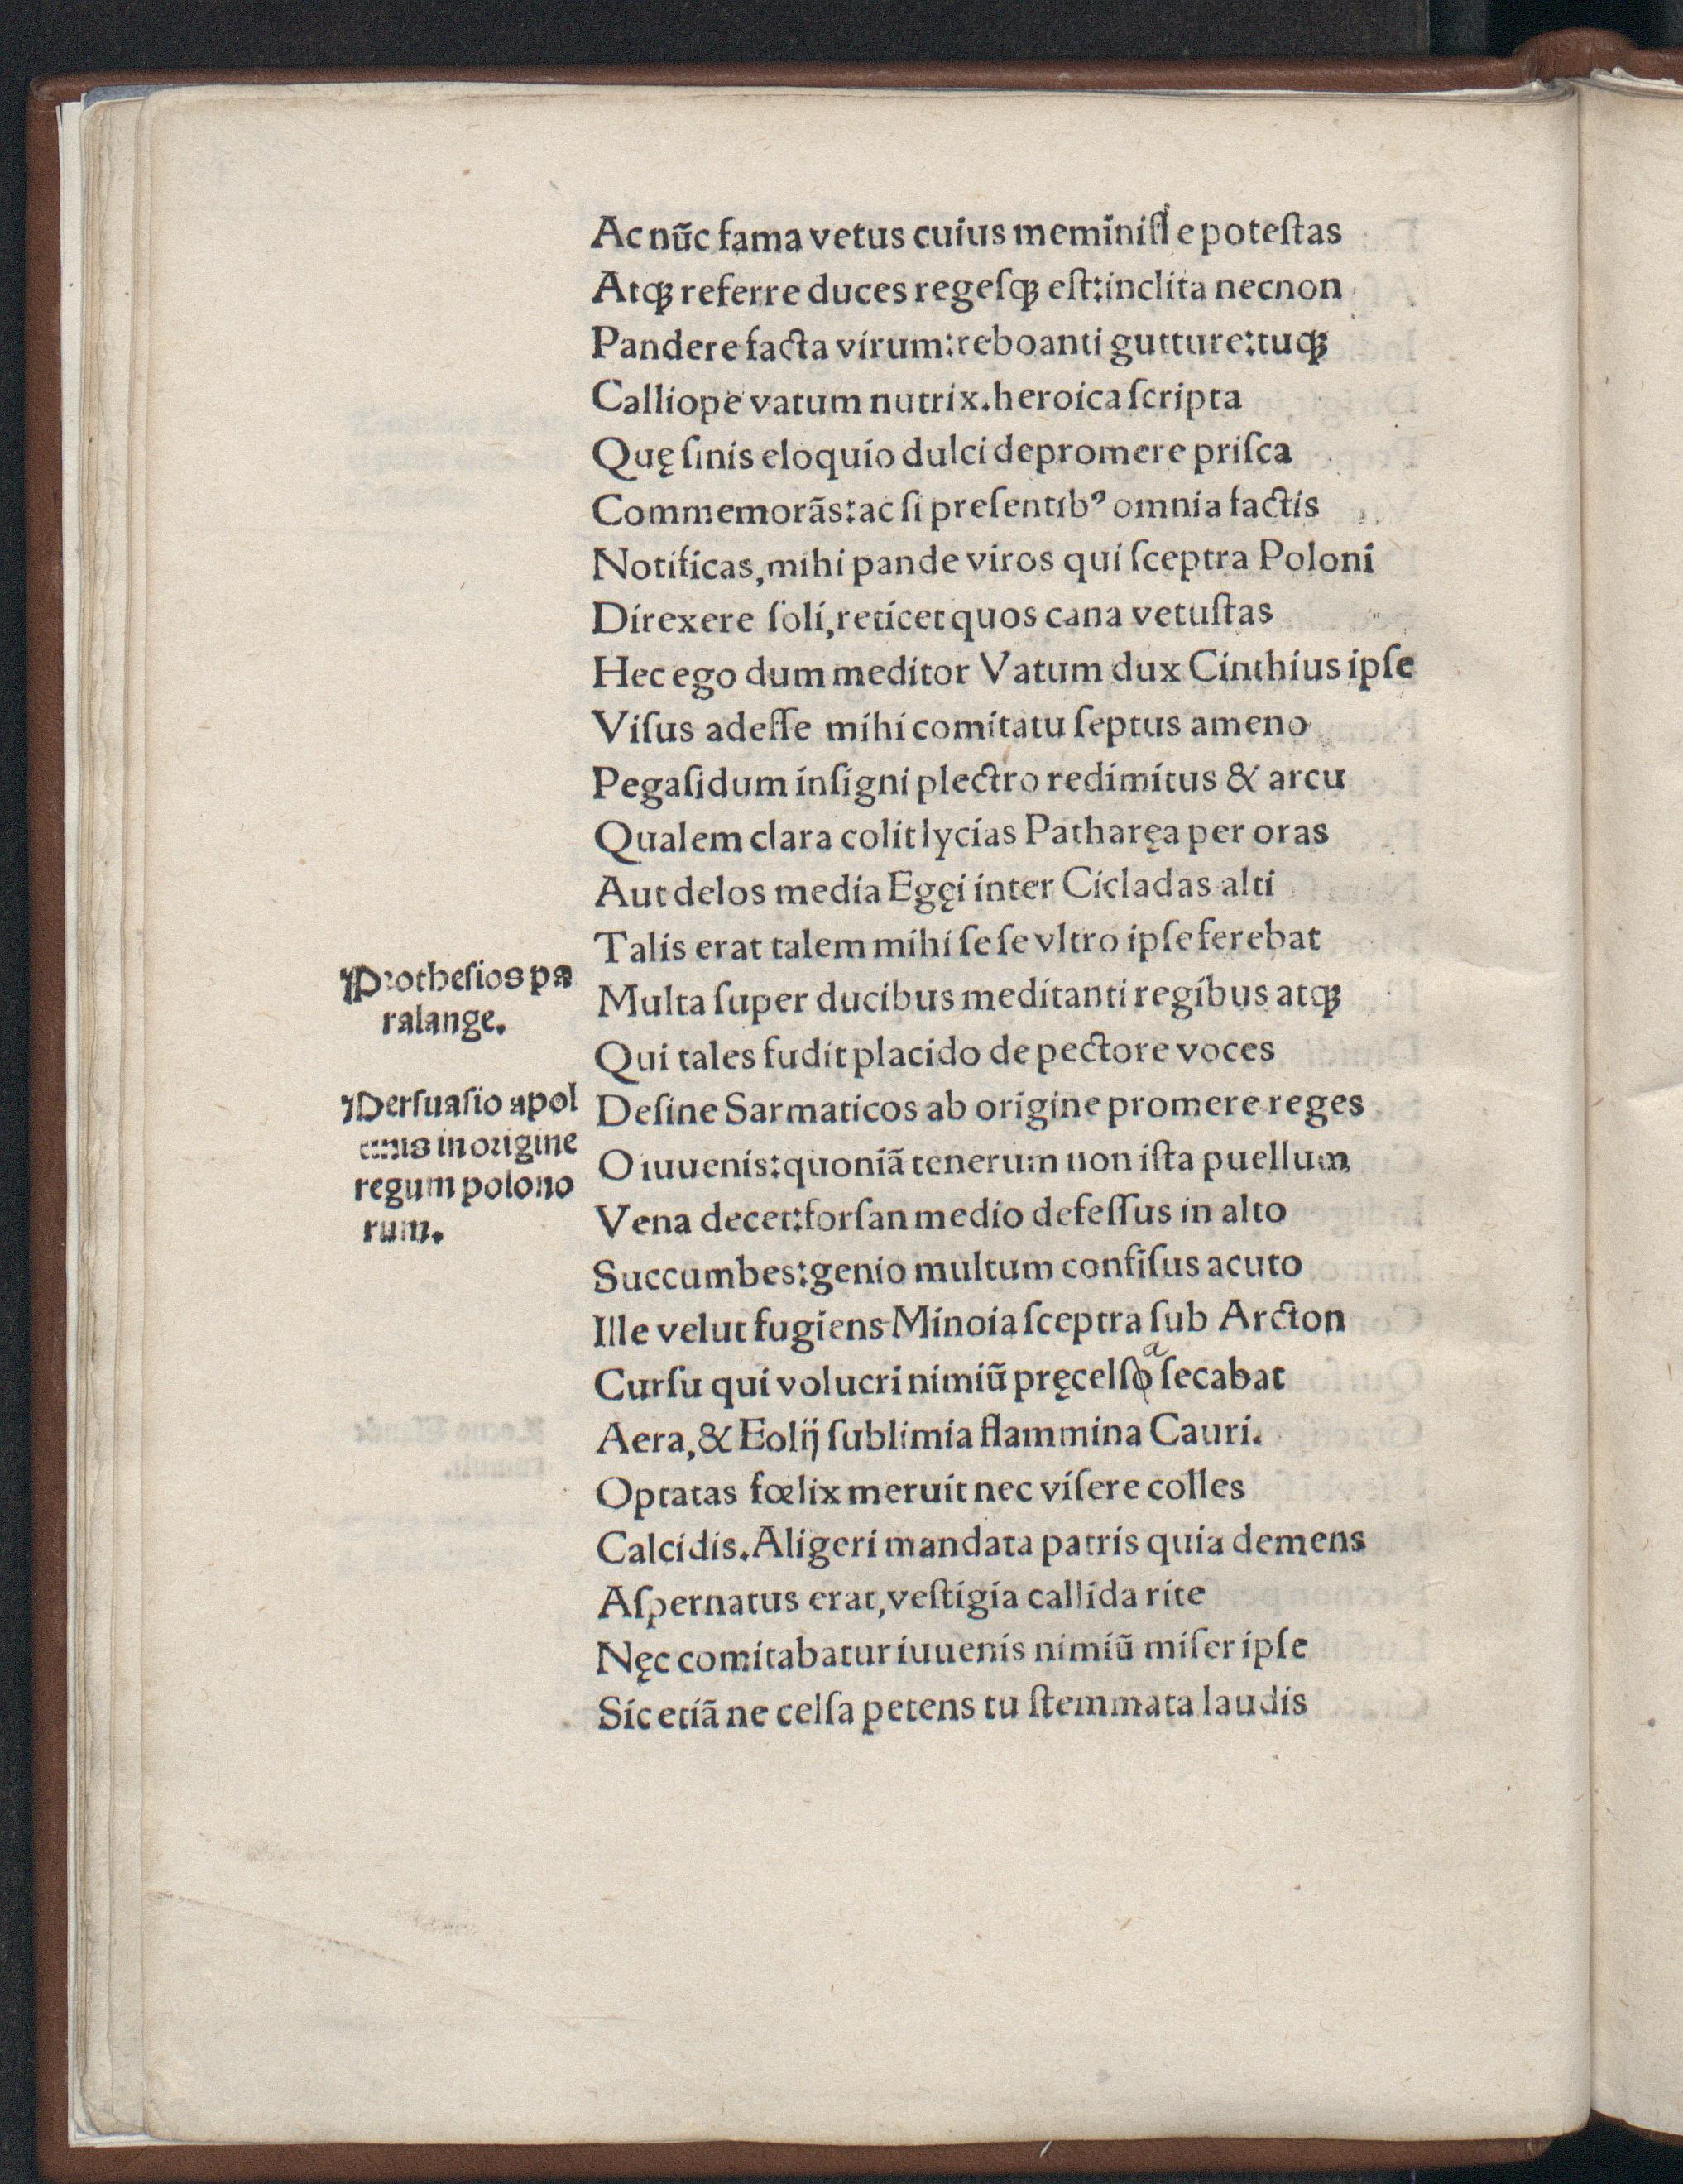 Ac nũc fama vetus cuius meminiſſe poteſtas
Atqꝫ referre duces regeſqꝫ eſt:inclita necnon
Pandere facta virum:reboanti gutture:tuqꝫ
Calliope vatum nutrix.heroica ſcripta
Quę ſinis eloquio dulci depromere priſca
Commemorãs:ac ſi preſentibꝰ omnia factis
Notificas,mihi pande viros qui ſceptra Poloni
Direxere ſoli,reticet quos cana vetuſtas
Hec ego dum meditor Vatum dux Cinthius ipſe
Viſus adeſſe mihi comitatu ſeptus ameno
Pegaſidum inſigni plectro redimitus & arcu
Qualem clara colit lycias Patharęa per oras
Aut delos media Egęi inter Cicladas alti
Talis erat talem mihi ſe ſe vltro ipſe ferebat
Protheſios pa
ralange.
Multa ſuper ducibus meditanti regibus atqꝫ
Qui tales fudit placido de pectore voces
Perſuaſio apol
linis in origine
regum polono
rum.
Deſine Sarmaticos ab origine promere reges
O iuuenis:quoniã tenerum non iſta puellum
Vena decet:forſan medio defeſſus in alto
Succumbes:genio multum confiſus acuto
Ille velut fugiens Minoia ſceptra ſub Arcton
a
Curſu qui volucri nimiũ pręcelſo ſecabat
Aera,& Eolij ſublimia flammina Cauri.
Optatas fœlix meruit nec viſere colles
Calcidis.Aligeri mandata patris quia demens
Aſpernatus erat,veſtigia callida rite
Nęc comitabatur iuuenis nimiũ miſer ipſe
Sic etiã ne celſa petens tu ſtemmata laudis